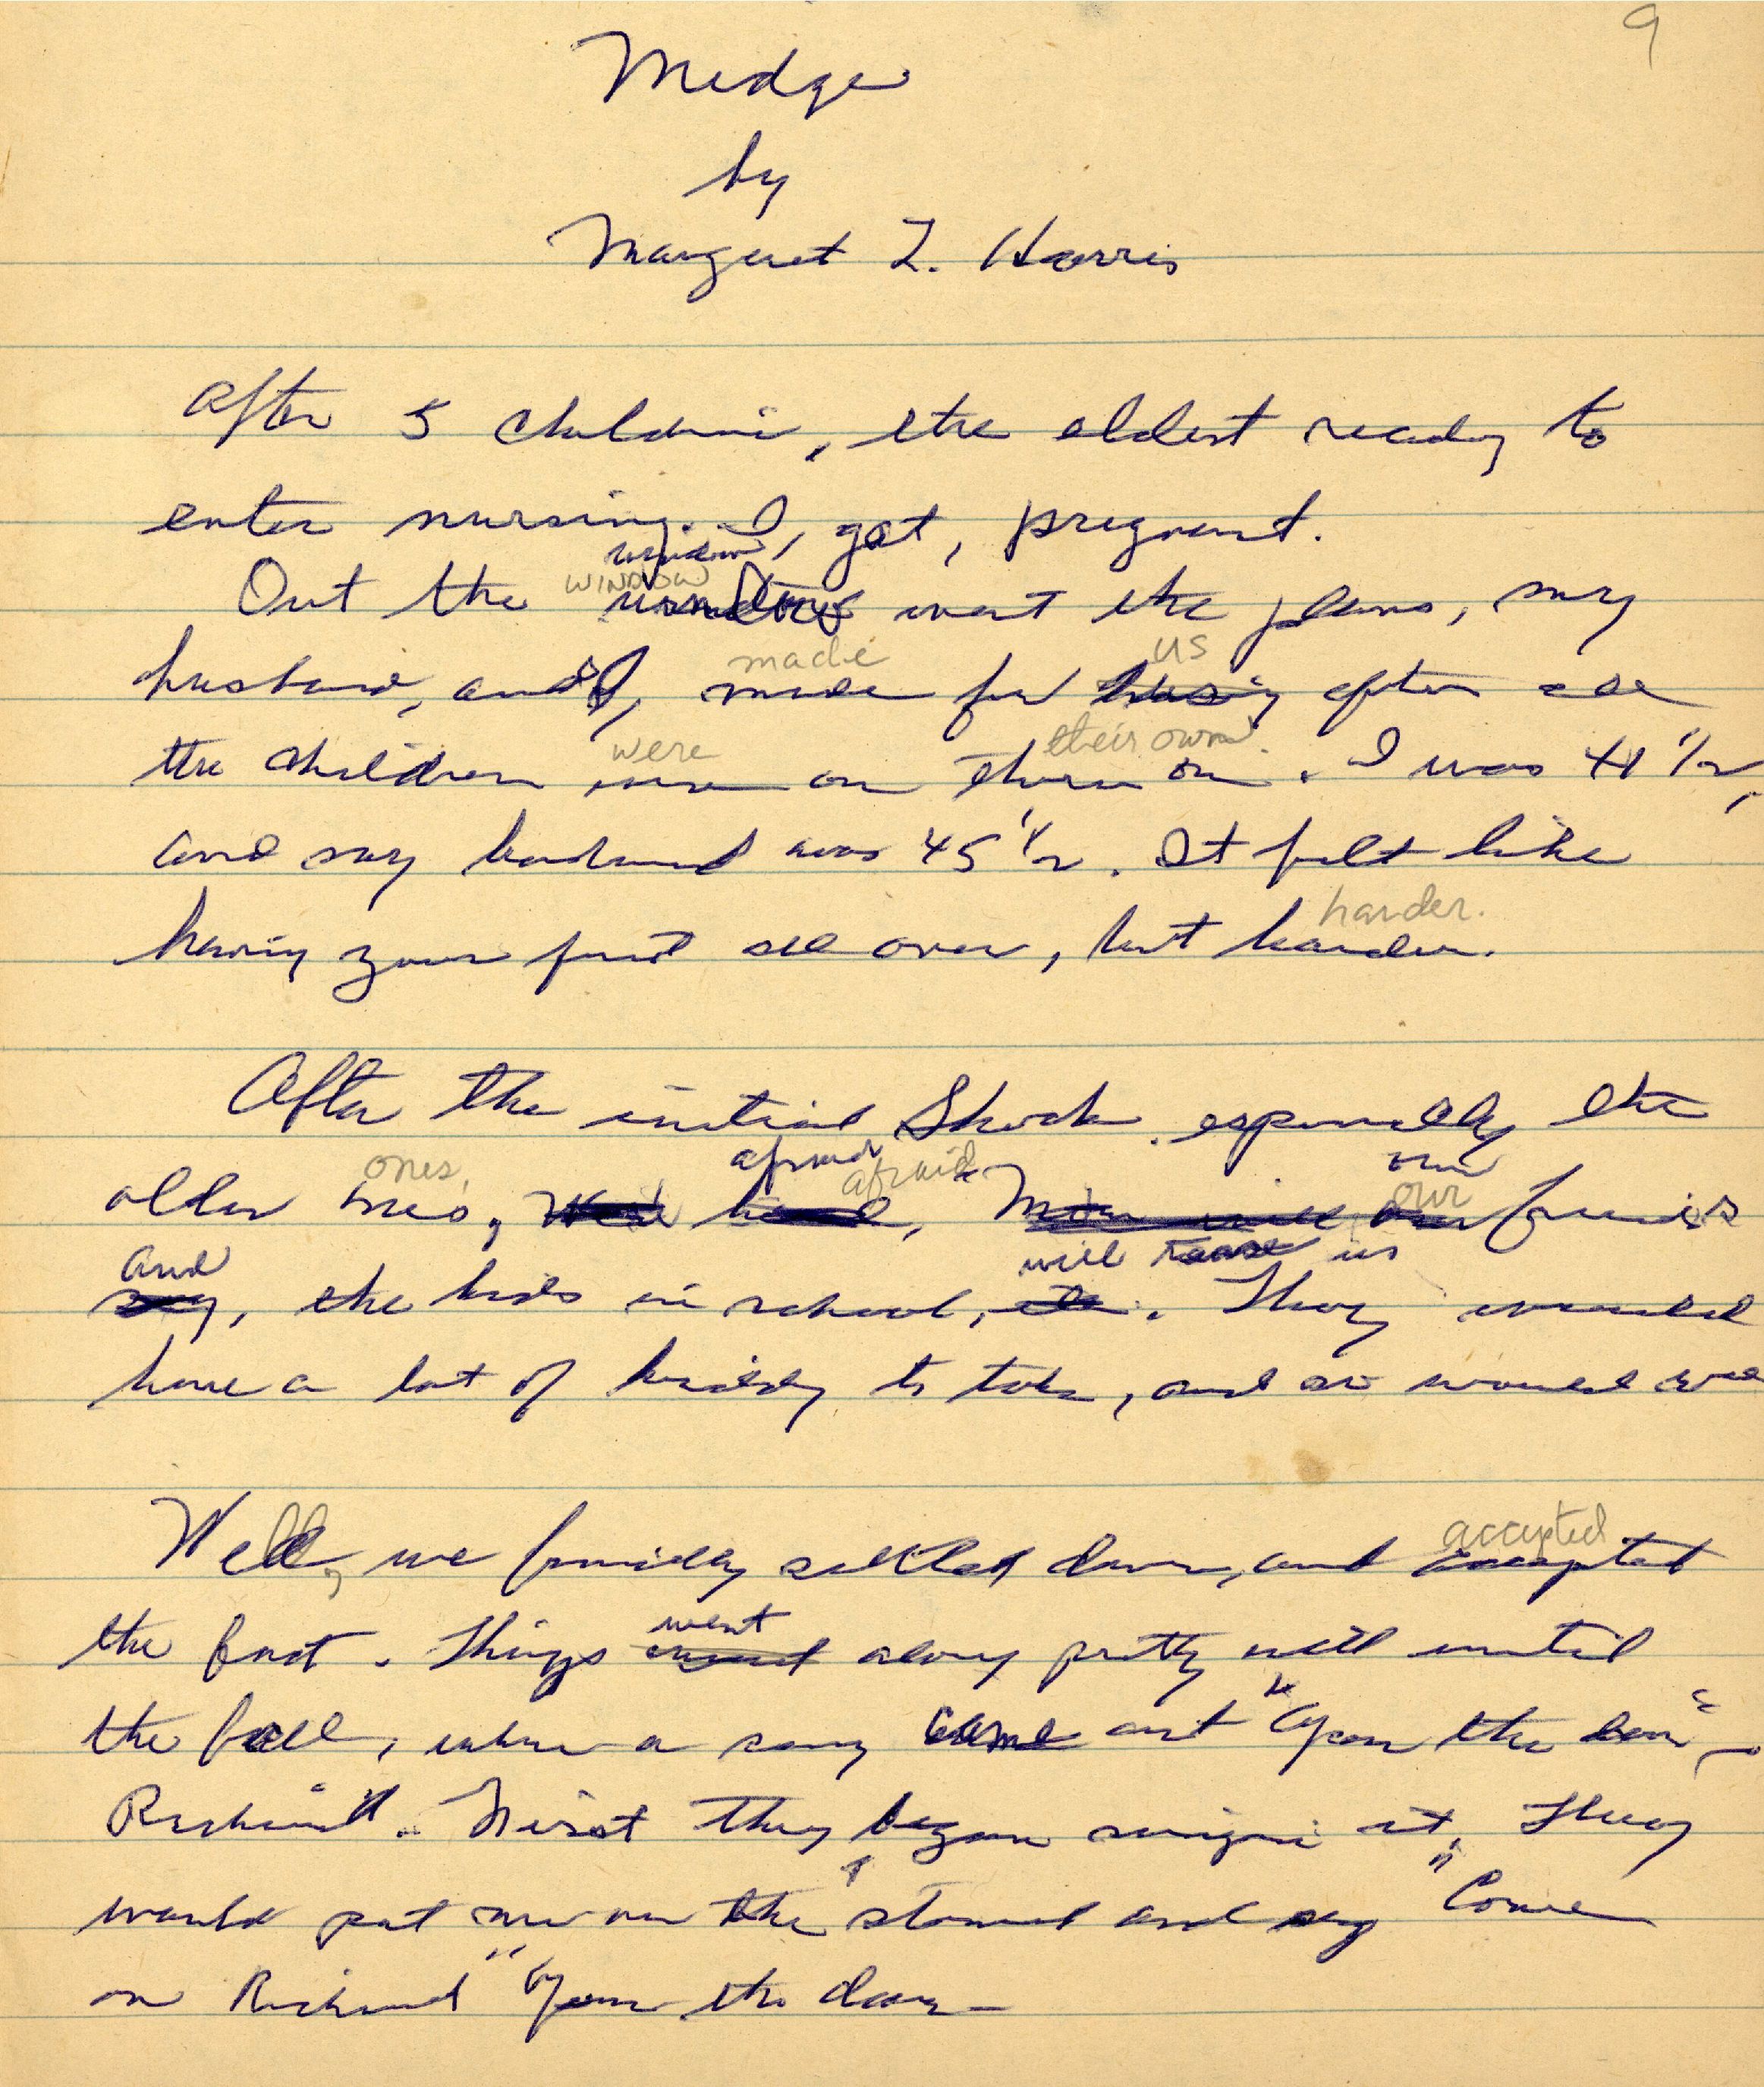 9
Midge
by
Margaret L. Harris
After 5 children, the oldest ready to
enter nursing. I, got, pregnant.
window
window
Out the window went the plans, my
made us
husband, and I, made for us after all
were their own.
the children were on their own. I was 41 1/2,
and my husband was 45 1/2. It felt like
harder.
having your first all over, but harder.
After the initial shock, especially the
ones, afraid afraid our our
older ones, friends
and will tease us
the kids in school, They would
have a lot of kidding to take, and so would we
accepted
Well, we finally settled down, and accepted
went
the fact. Things along pretty well until
the fall, when a song came out "Open the door,
Richard". First they began singing it. They
would put me on the stomach and say "Come
on Richard" "Open the door